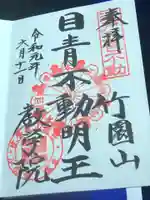 奉拝
竹園山
目青不動明王
教学院
令和元年
六月十一日